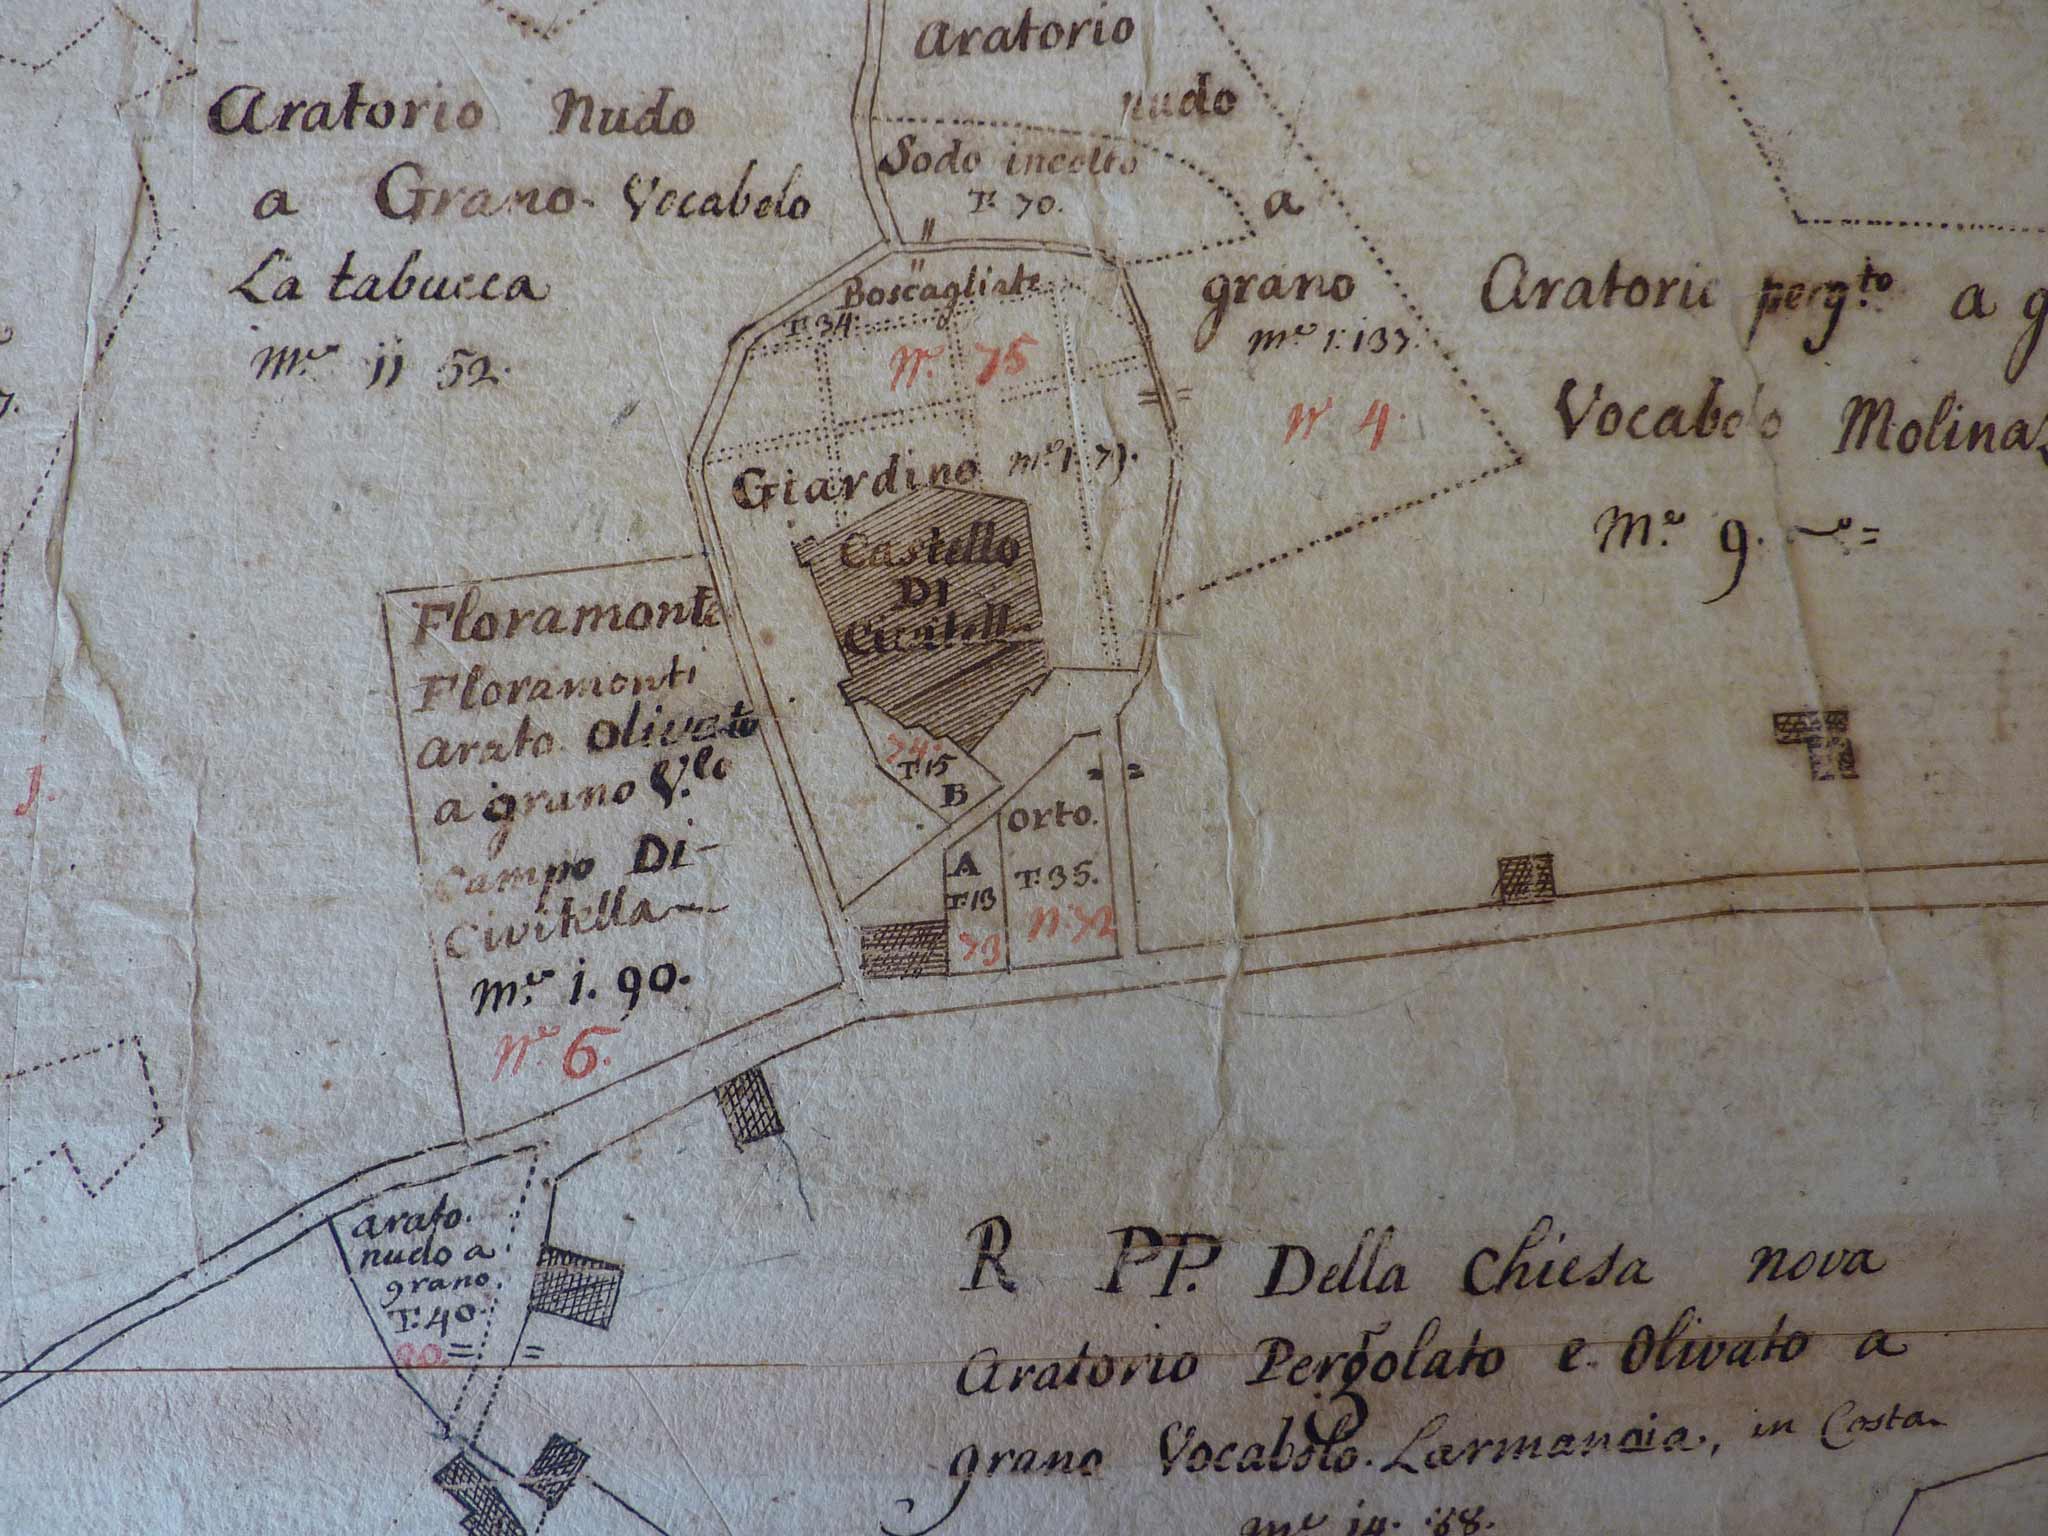 Aratorio Nudo
a Grano. Vocabolo
La tabucca
M.e 11 52.
Aratorio
nudo
a
grano
m.e 1:137.
N.° 4.
Sodo incolto
T: 70.
Boscagliate
T: 34.
N.° 75
Giardino m.e 1:79.
Castello
DI
Civitella
74.
T: 15
B
orto.
T: 35.
N: 72
A
T: 13
73
Floramonte
Floramonti
arato Olivato
a grano V.lo
Campo Di-
Civitella
M.e 1. 90.
N.° 6.
Aratorio perg.to a g
Vocabolo Molinaz
M.e 9.
1.
7.
arato.
nudo a
grano.
T: 40.
90.
R PP. Della Chiesa nova
Aratorio Pergolato e Olivato a
grano Vocabolo. in Costa
m.e 14. :68.